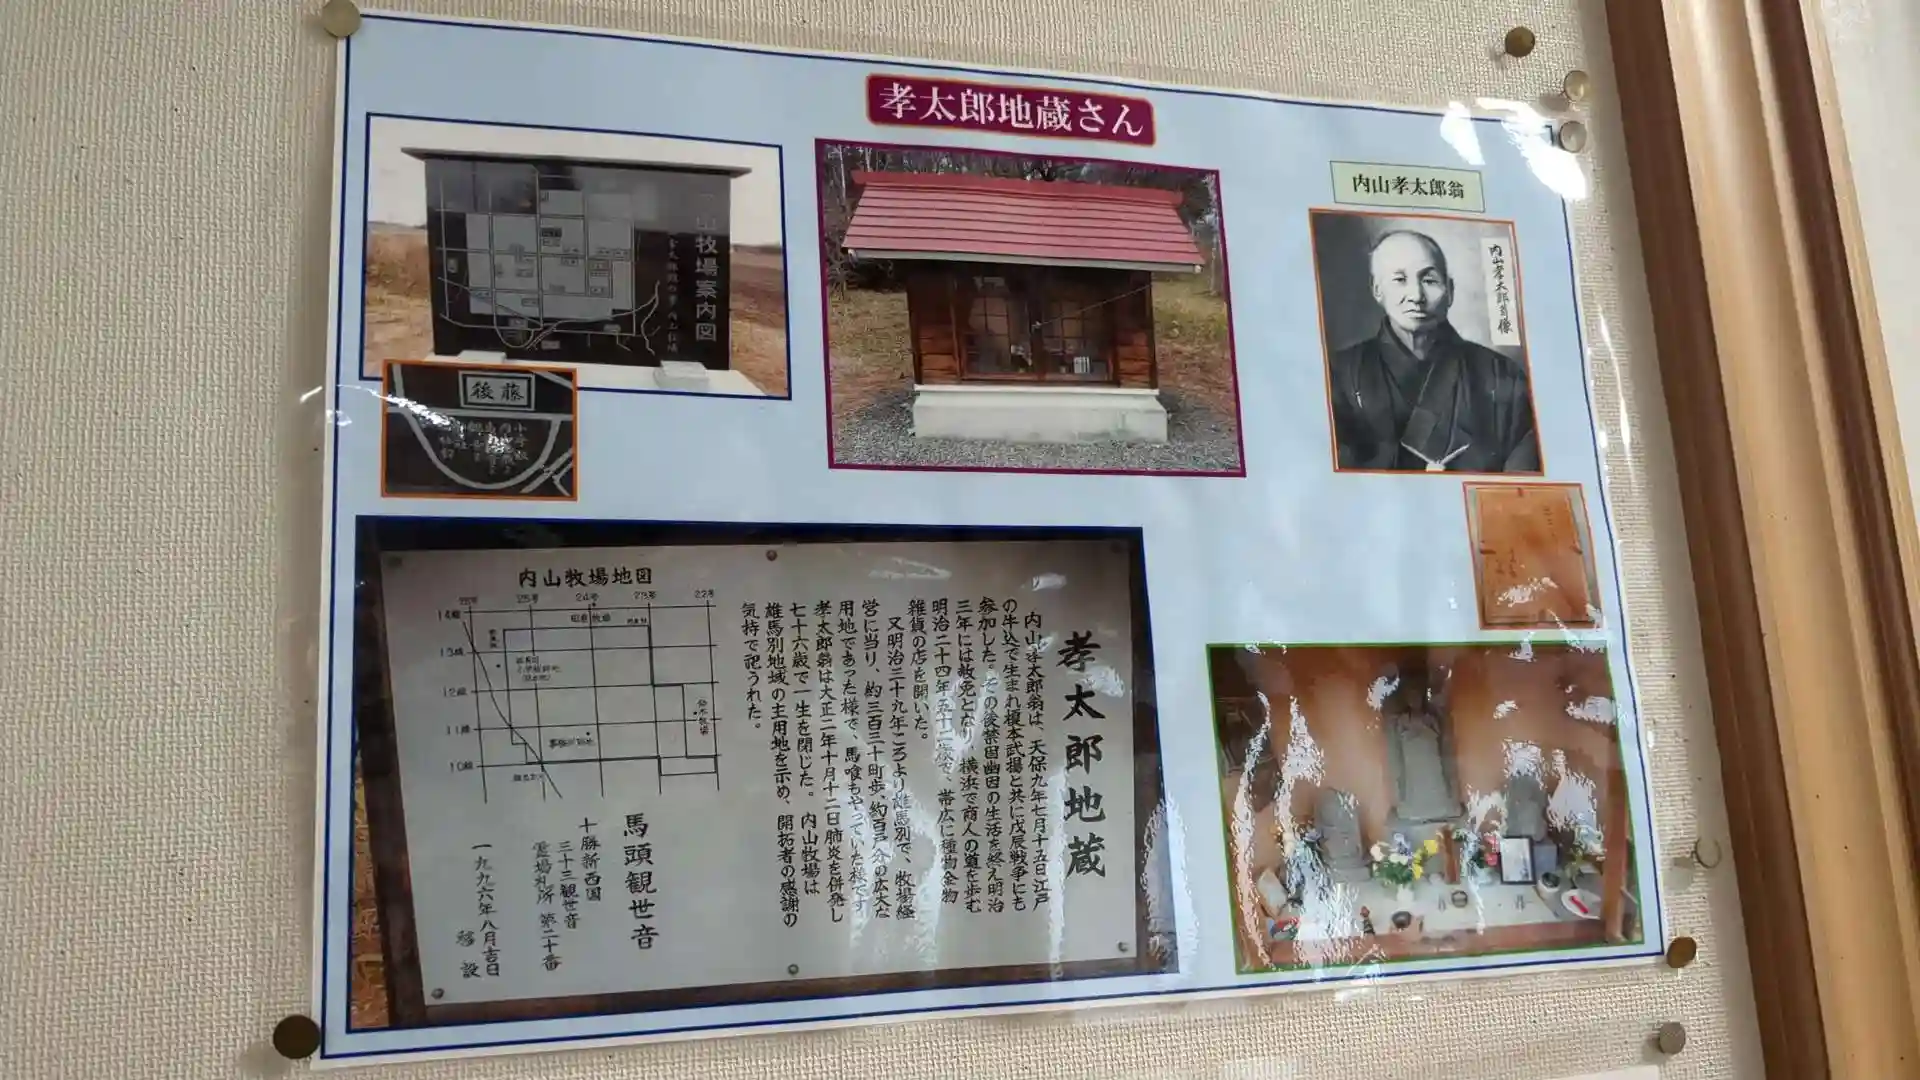 孝太郎地蔵さん
山牧場案内図
後藤
内山孝太郎翁
内山孝太郎肖像
孝太郎地蔵
内山孝太郎翁は、天保九年七月十五日江戸
の牛込で生まれ榎本武揚と共に戊辰戦争にも
参加した。その後禁固幽因の生活を終え明治
三年には赦免となり、横浜で商人の道を歩む
明治二十四年五十二歳で、帯広に種物金物
雑貨の店を開いた。
又明治三十九年ころより雄馬別で、牧場経
営に当り、約三百三十町歩、約百戸分の広大な
用地であった様で、馬喰もやっていた様です。
孝太郎翁は大正二年十月十二日肺炎を併発し
七十六歳で一生を閉じた。内山牧場は
雄馬別地域の主用地を示め、開拓者の感謝の
気持で祀うれた。
内山牧場地図
25号
24号
23号
22号
14線
13線
12線
11線
10線
馬頭観世音
十勝新西国
三十三観世音
霊場札所 第二十番
一九九六年八月吉日
移設